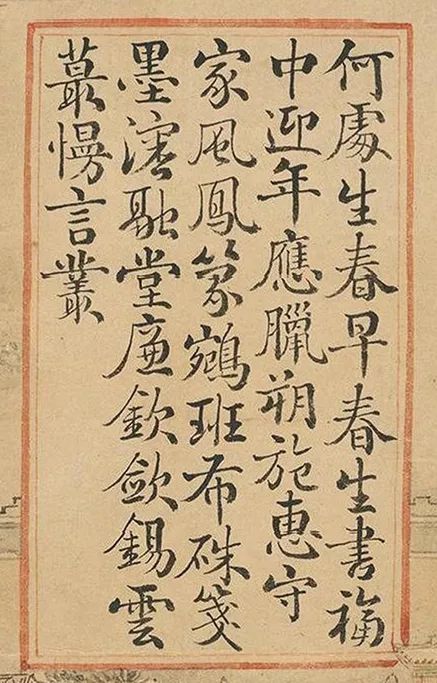 何處生春早春生書福
中迎年應臘朔施惠守
家風鳳篆鵷班布硃箋
墨瀋融堂廉欽歛錫雲
蕞慢言叢